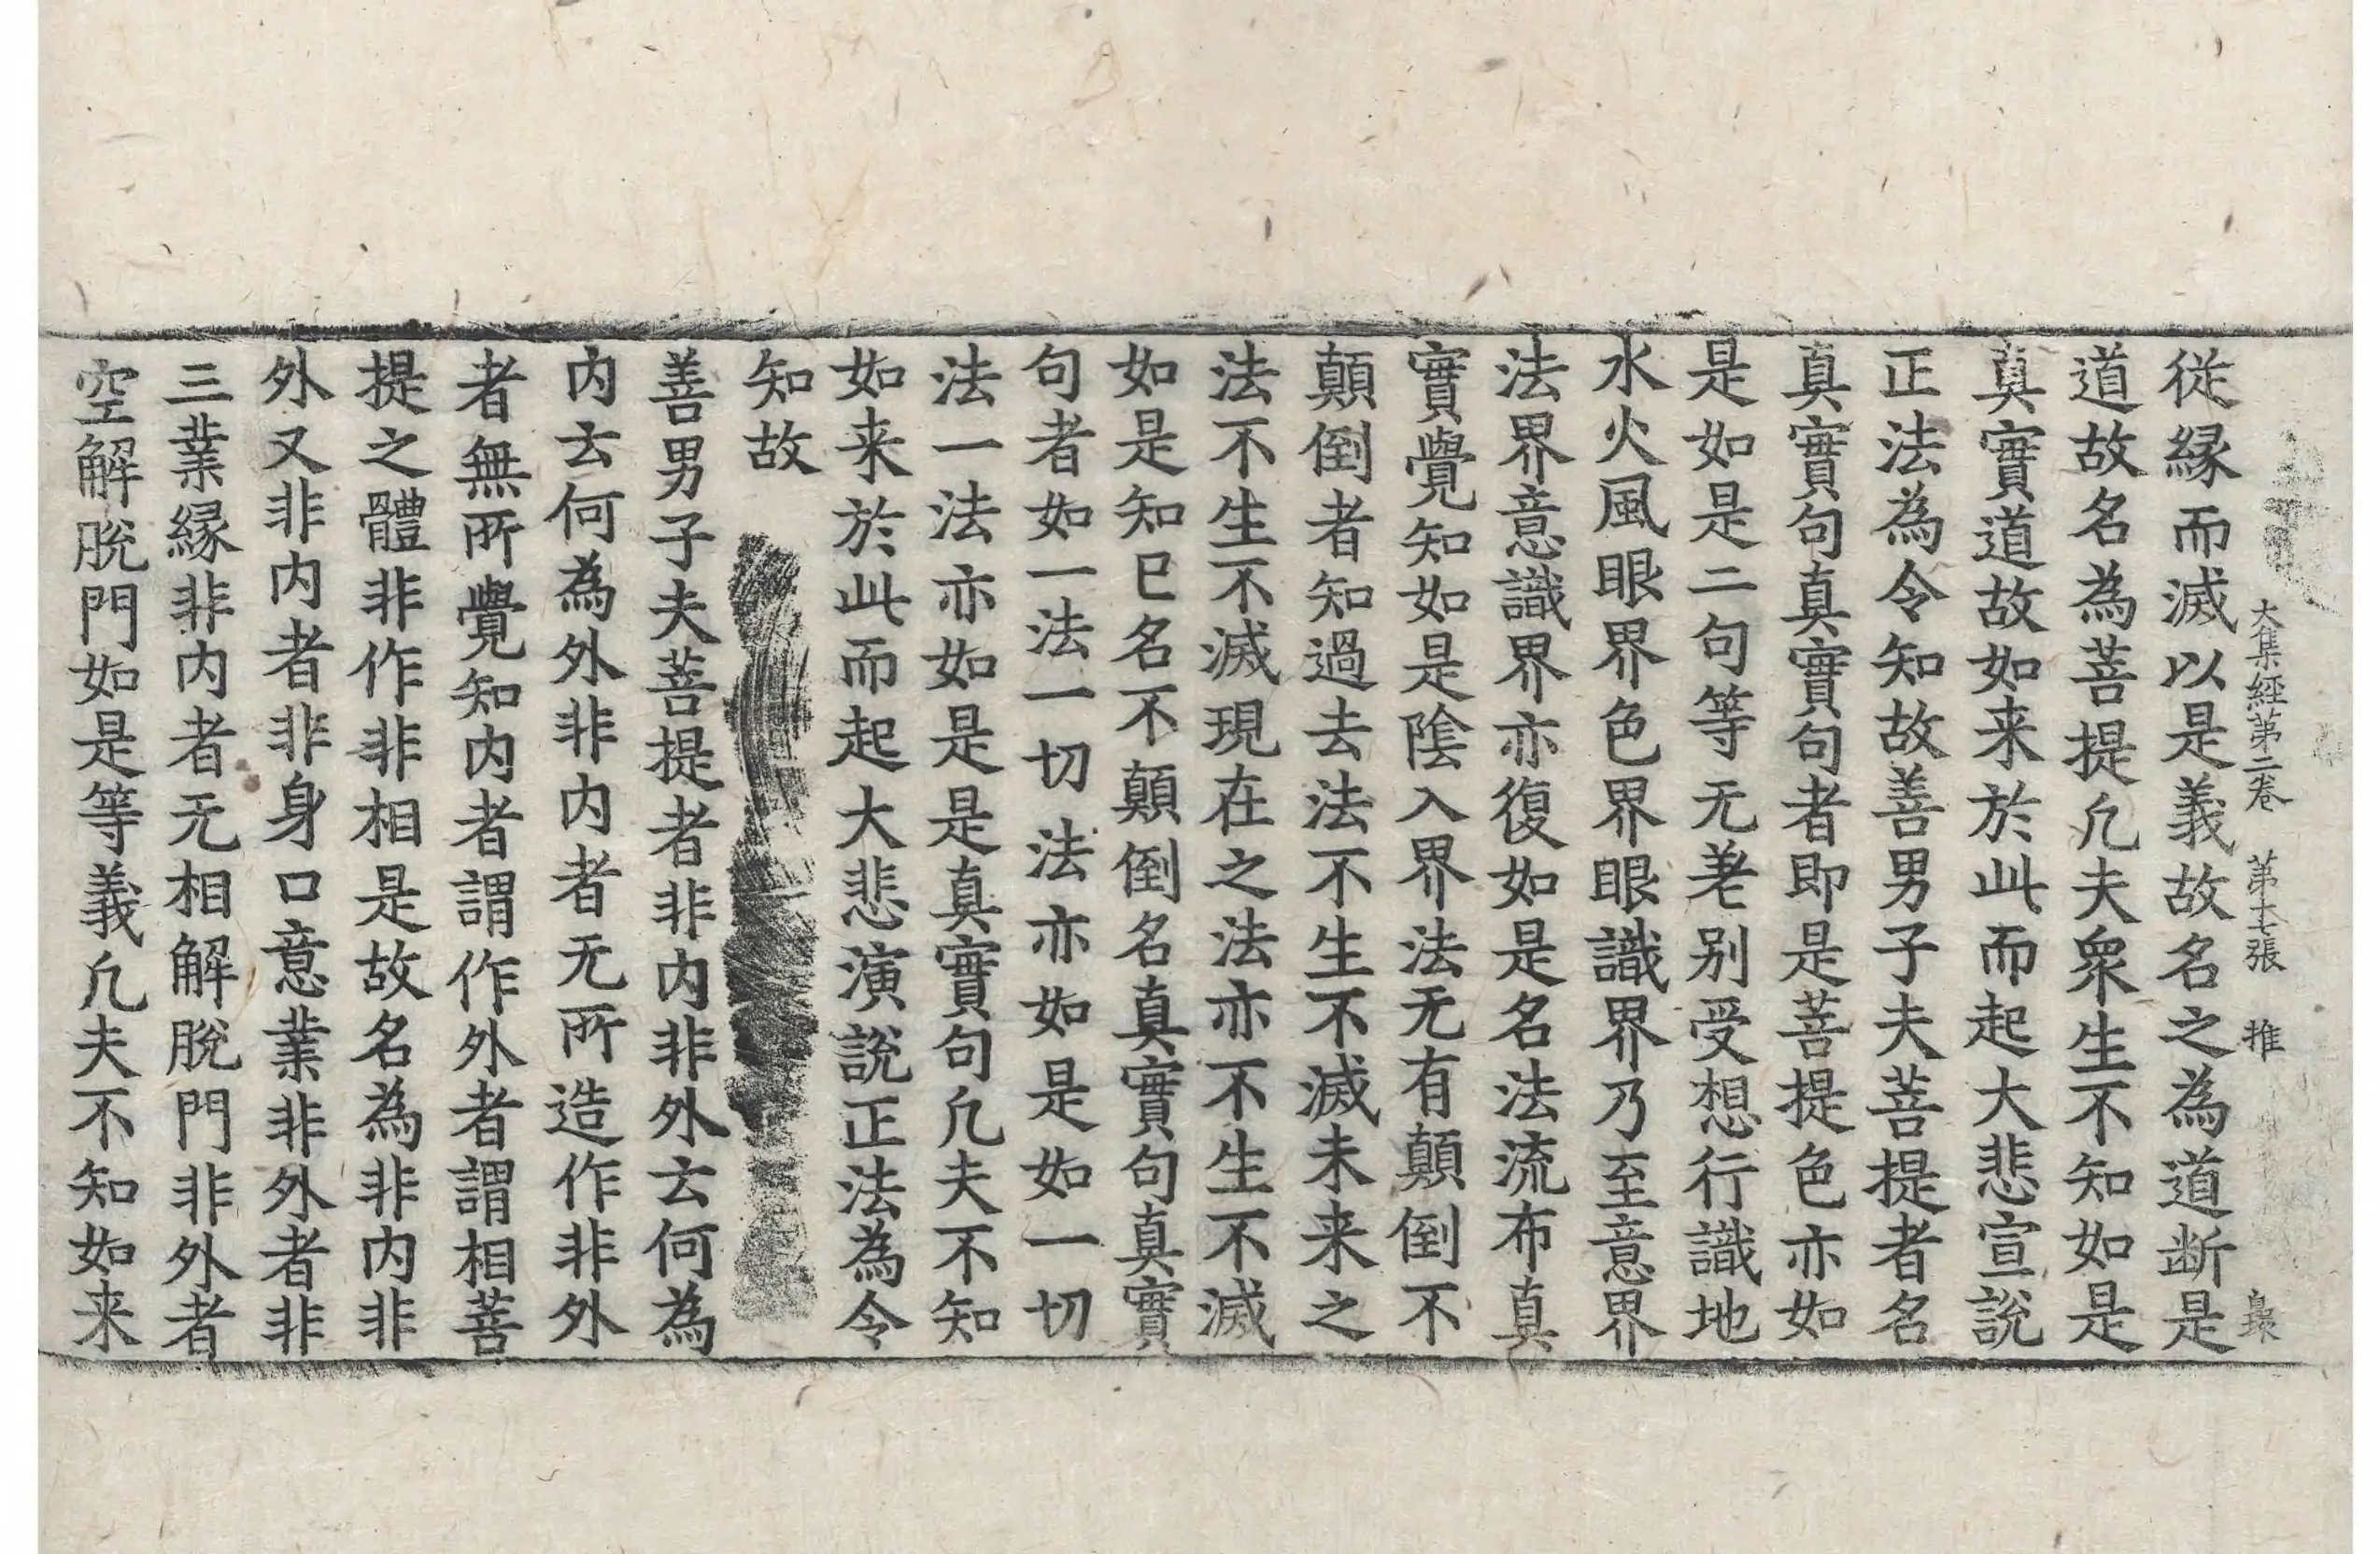 大集經第二卷 第十七張 推 梟
従緣而滅以是義故名之為道断是
道故名為菩提凢夫衆生不知如是
真實道故如来於此而起大悲宣說
正法為令知故善男子夫菩提者名
真實句真實句者即是菩提色亦如
是如是二句等无差别受想行識地
水火風眼界色界眼識界乃至意界
法界意識界亦復如是名法流布真
實覺知如是陰入界法无有顛倒不
顛倒者知過去法不生不滅未来之
法不生不滅現在之法亦不生不滅
如是知已名不顛倒名真實句真實
句者如一法一切法亦如是如一切
法一法亦如是是真實句凢夫不知
如来於此而起大悲演說正法為令
知故
善男子夫菩提者非内非外云何為
内云何為外非内者无所造作非外
者無所覺知内者謂作外者謂相菩
提之體非作非相是故名為非内非
外又非内者非身口意業非外者非
三業緣非内者无相解脫門非外者
空解脫門如是等義凢夫不知如来